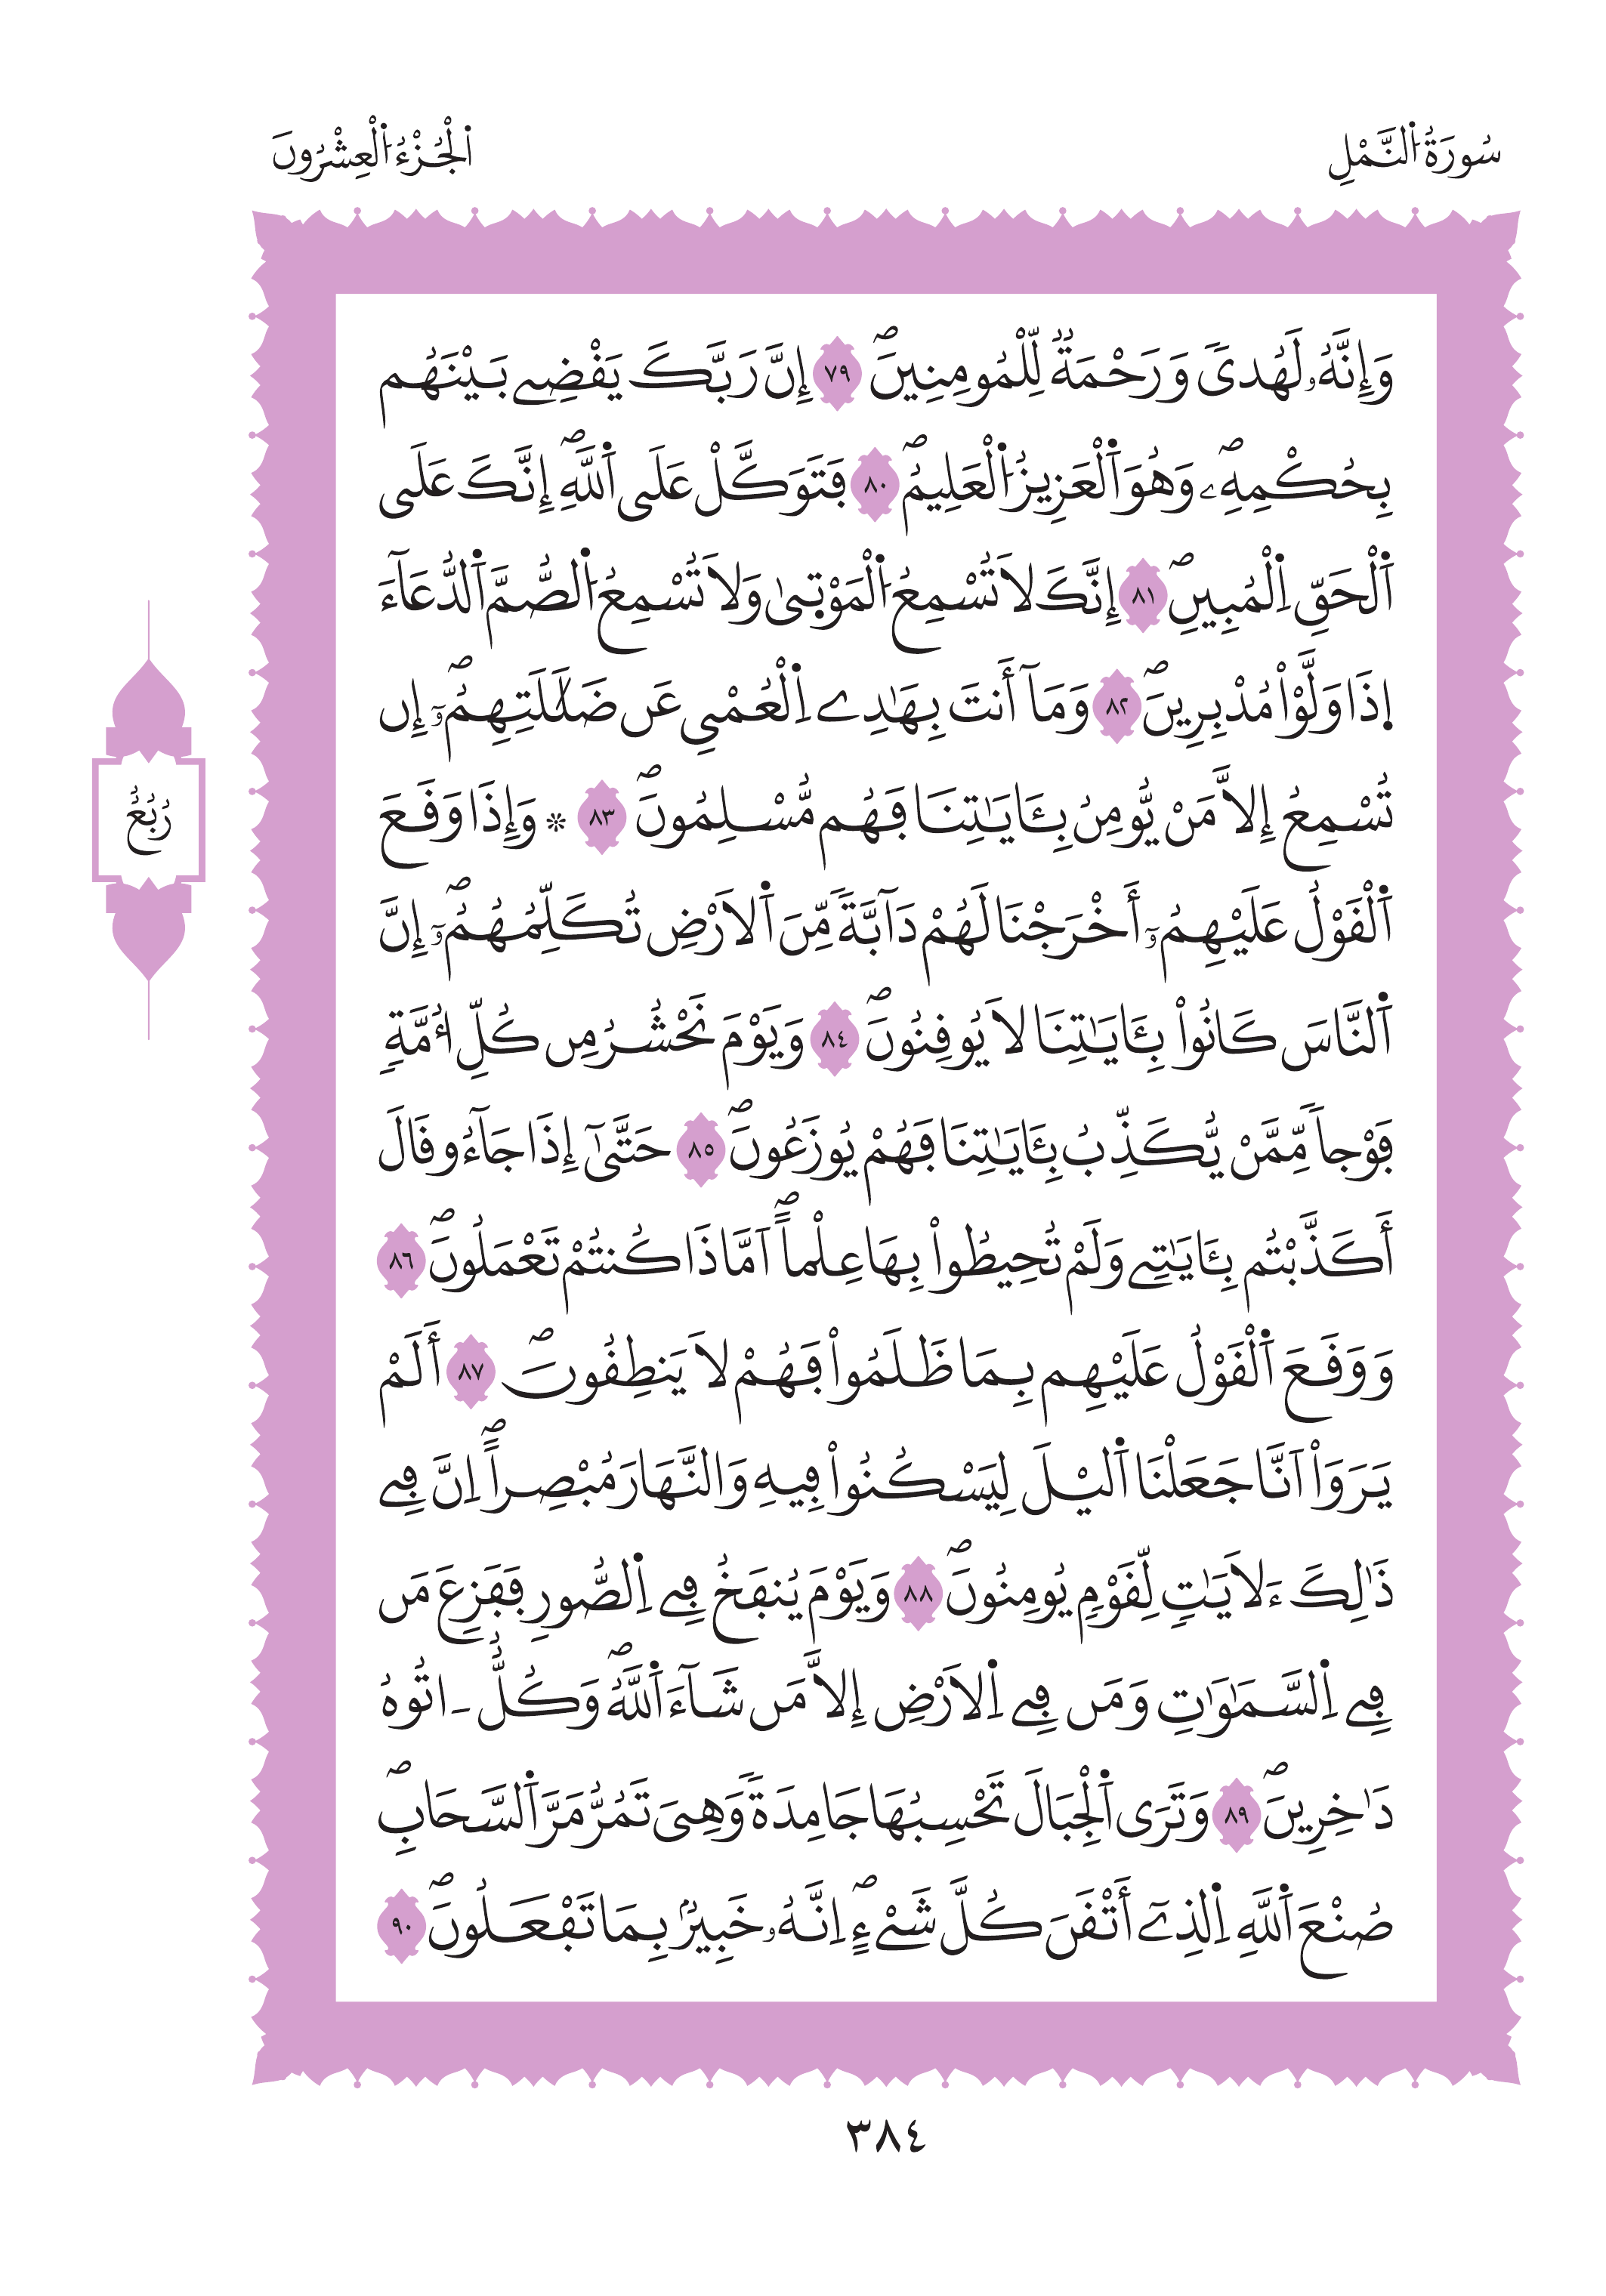 سُورَةُ اُ۬لنَّمْلِ
اَ۬لْجُزْءُ اُ۬لْعِشْرُونَ
وَإِنَّهُۥ لَهُدىٗ وَرَحْمَةٞ لِّلْمُومِنِينَۖ ٧٩ إِنَّ رَبَّكَ يَقْضِے بَيْنَهُم
بِحُكْمِهِۦۖ وَهُوَ اَ۬لْعَزِيزُ اُ۬لْعَلِيمُۖ ٨٠ فَتَوَكَّلْ عَلَى اَ۬للَّهِۖ إِنَّكَ عَلَى
اَ۬لْحَقِّ اِ۬لْمُبِينِۖ ٨١ إِنَّكَ لَا تُسْمِعُ اُ۬لْمَوْت۪ىٰ وَلَا تُسْمِعُ اُ۬لصُّمَّ اَ۬لدُّعَآءَ
اِ۪ذَا وَلَّوْاْ مُدْبِرِينَۖ ٨٢ وَمَآ أَنتَ بِهَٰدِے اِ۬لْعُمْيِ عَن ضَلَٰلَتِهِمُۥٓ إِن
تُسْمِعُ إِلَّا مَنْ يُّومِنُ بِـَٔايَٰتِنَا فَهُم مُّسْلِمُونَۖ ٨٣ * وَإِذَا وَقَعَ
اَ۬لْقَوْلُ عَلَيْهِمُۥٓ أَخْرَجْنَا لَهُمْ دَآبَّةٗ مِّنَ اَ۬لَارْضِ تُكَلِّمُهُمُۥٓ إِنَّ
اَ۬لنَّاسَ كَانُواْ بِـَٔايَٰتِنَا لَا يُوقِنُونَۖ ٨٤ وَيَوْمَ نَحْشُرُ مِن كُلِّ أُمَّةٖ
فَوْجاٗ مِّمَّنْ يُّكَذِّبُ بِـَٔايَٰتِنَا فَهُمْ يُوزَعُونَۖ ٨٥ حَتَّىٰٓ إِذَا جَآءُو قَالَ
أَكَذَّبْتُم بِـَٔايَٰتِے وَلَمْ تُحِيطُواْ بِهَا عِلْماًۖ اَمَّاذَا كُنتُمْ تَعْمَلُونَۖ ٨٦
وَوَقَعَ اَ۬لْقَوْلُ عَلَيْهِم بِمَا ظَلَمُواْ فَهُمْ لَا يَنطِقُونَۖ ٨٧ أَلَمْ
يَرَوَاْ اَنَّا جَعَلْنَا اَ۬ليْلَ لِيَسْكُنُواْ فِيهِ وَالنَّهَارَ مُبْصِراًۖ اِنَّ فِے
ذَٰلِكَ ءَلَايَٰتٖ لِّقَوْمٖ يُومِنُونَۖ ٨٨ وَيَوْمَ يُنفَخُ فِے اِ۬لصُّورِ فَفَزِعَ مَن
فِے اِ۬لسَّمَٰوَٰتِ وَمَن فِے اِ۬لَارْضِ إِلَّا مَن شَآءَ اَ۬للَّهُۖ وَكُلٌّ ـ اتُوهُ
دَٰخِرِينَۖ ٨٩ وَتَرَى اَ۬لْجِبَالَ تَحْسِبُهَا جَامِدَةٗ وَهِيَ تَمُرُّ مَرَّ اَ۬لسَّحَابِۖ
صُنْعَ اَ۬للَّهِ اِ۬لذِےٓ أَتْقَنَ كُلَّ شَےْءٍۖ اِنَّهُۥ خَبِيرُۢ بِمَا تَفْعَلُونَۖ ٩٠
رُبُعُ
٣٨٤